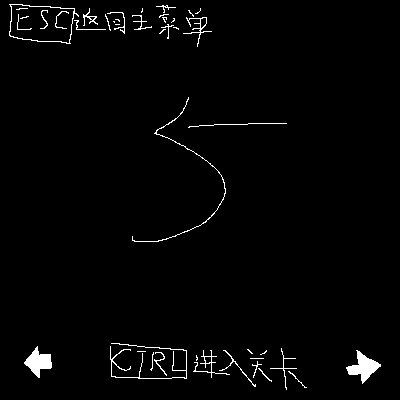 ESC返回主菜单
5
CTRL进入关卡